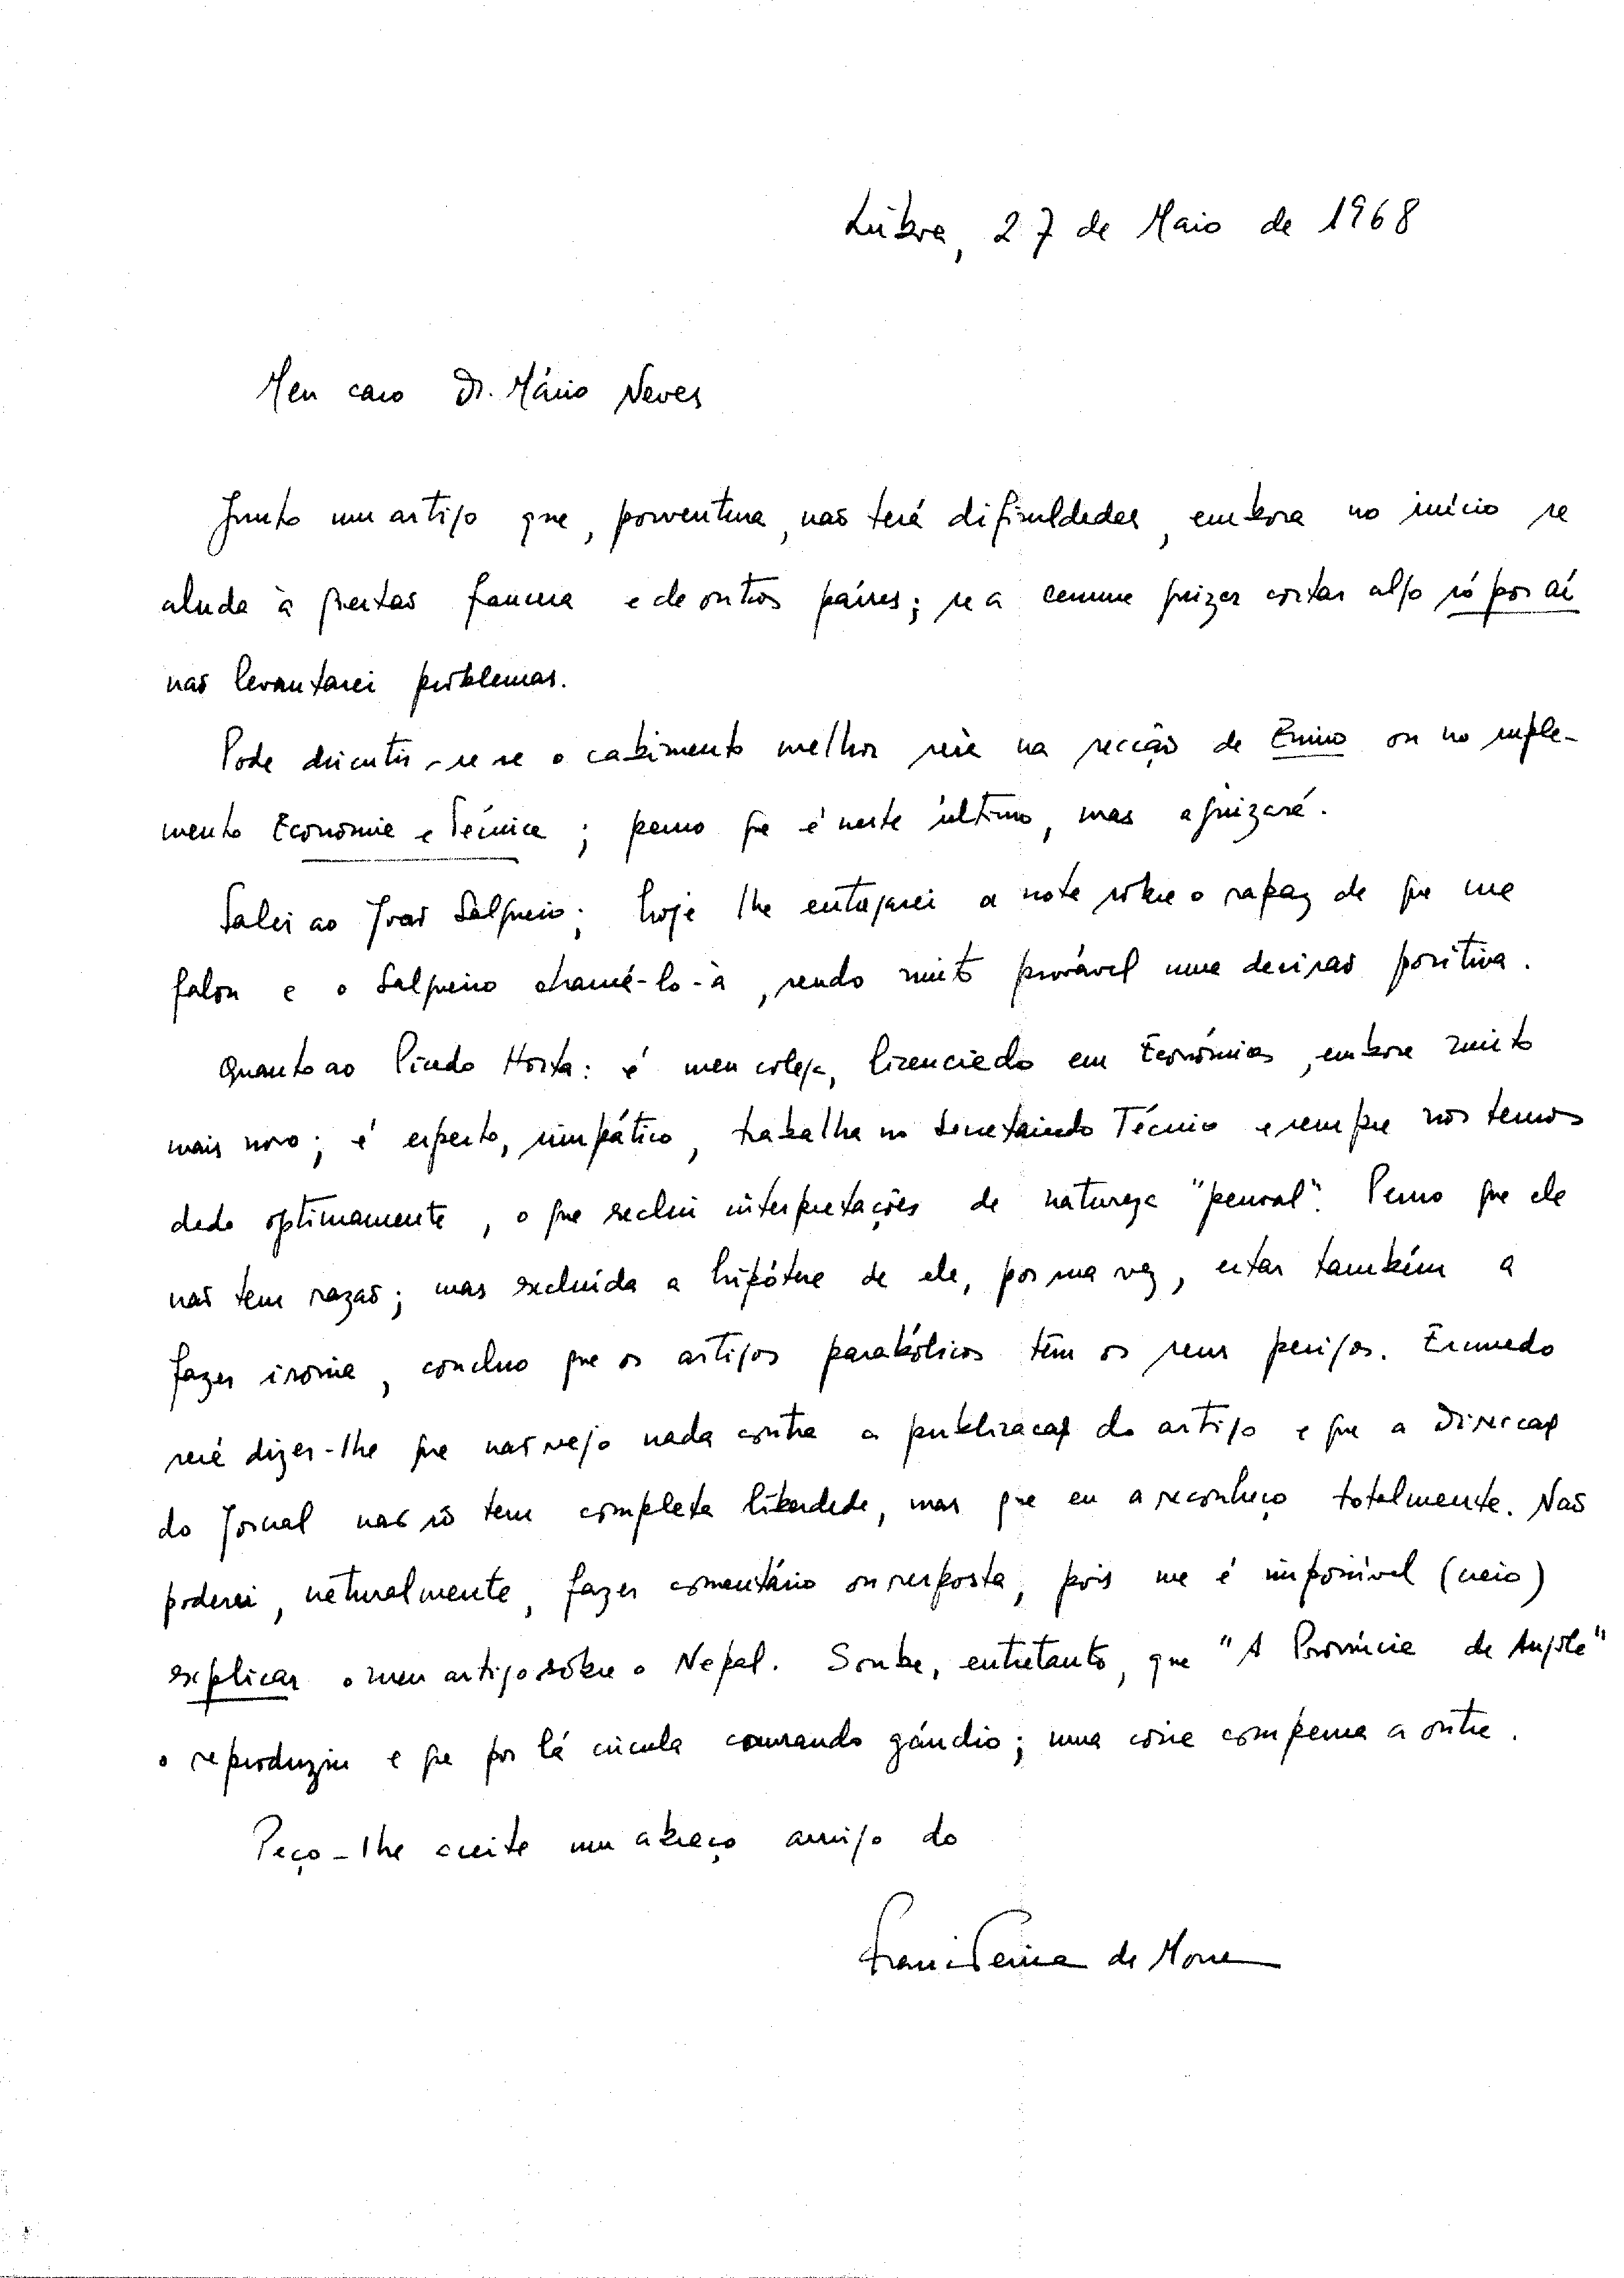 Lisboa, 27 de Maio de 1968
Meu caro Dr. Mário Neves
Junto um artigo que, porventura, não terá dificuldades, embora no início se
aluda à questão francesa e de outros países; se a censura quizer cortar algo só por aí
não levantarei problemas.
Pode discutir-se se o cabimento melhor seia na secção de Ensino ou no suple-
mento Economia e Técnica; penso que é neste último, mas ajuizará.
Falei ao João Salgueiro; hoje lhe entregarei a nota sôbre o rapaz de que me
falou e o Salgueiro chamá-lo-à, sendo muito provável uma decisão positiva.
Quanto ao Picado Horta: é meu colega, licenciado em Económicas, embora muito
mais novo; é esperto, simpático, trabalha no Secretariado Técnico e sempre nos temos
dado optimamente, o que exclui interpretações de natureza "pessoal". Penso que ele
não tem razão; mas excluída a hipótese de ele, por sua vez, estar também a
fazer ironia, concluo que os artigos parabólicos têm os seus perigos. Escusado
será dizer-lhe que não vejo nada contra a publicação do artigo e que a Direcção
do Jornal não só tem completa liberdade, mas que eu a reconheço totalmente. Não
poderei, naturalmente, fazer comentário ou resposta, pois me é impossível (creio)
explicar o meu artigo sôbre o Nepal. Soube, entretanto, que "A Província de Angola"
o reproduziu e que por lá circula causando gáudio; uma coisa compensa a outra.
Peço-lhe aceite um abraço amigo do
Pereira de Moura